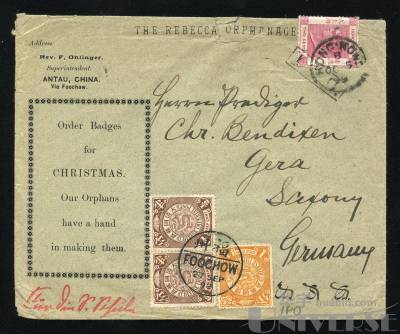 THE REBECCA ORPHANAGE
Address:
Rev. F. Ohlinger,
Superintendent.
ANTAU, CHINA.
Via Foochow.
Order Badges
for
CHRISTMAS.
Our Orphans
have a hand
in making them.
Herrn Prediger
Chr. Bendixen
Gera
Saxony
Germany
HONG KONG
FOOCHOW
SEP
I.P.O.
UNIVERSE